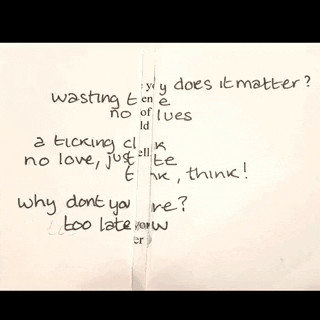 y does it matter?
wasting t en e
no of lues
ld
a ticking cl k
no love, just ell te
t nk, think!
why dont you re?
too late you w
er